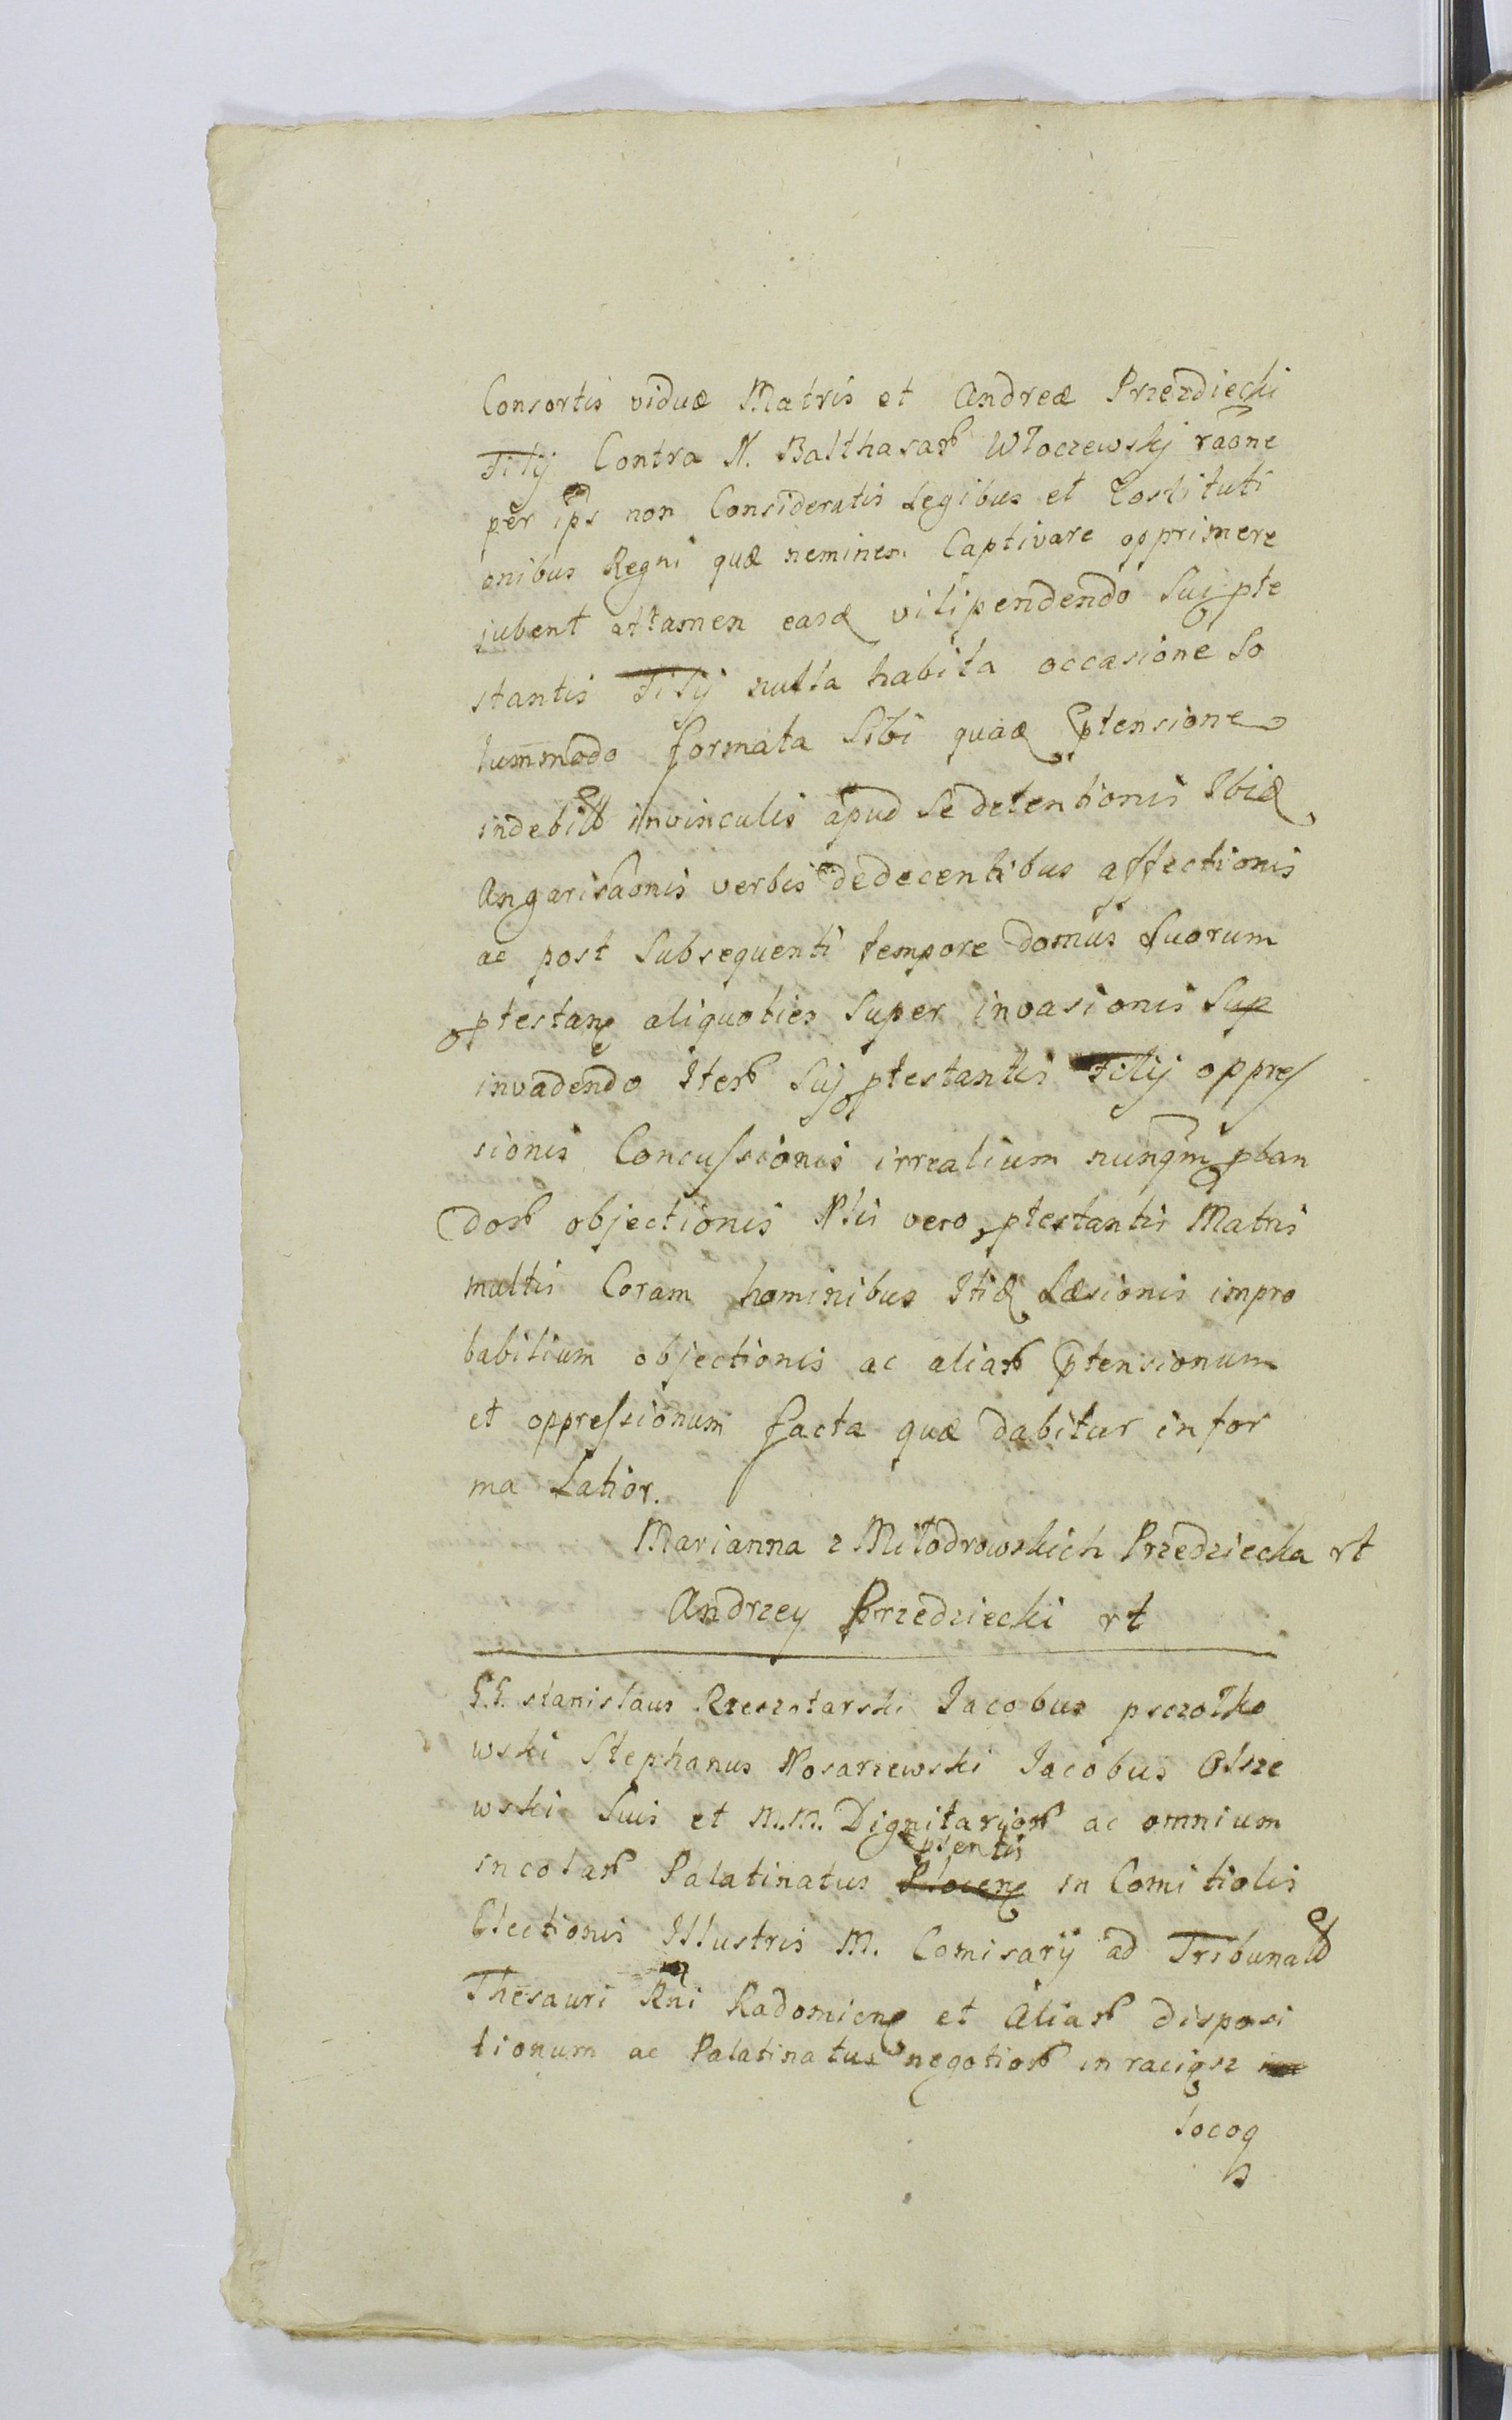 Consortis viduæ Matris et Andreæ Przezdiecki
Filij Contra N. Balthasar Włoczewskj raone
per ips non Consideratis Legibus et Costituti
onibus Regni quæ neminem Captivare opprimere
jubent attamen easq vilipendendo Sui pte
stantis Filij nulla habita occasione So
lummodo formata Sibi quadā ptensione
indebite in vinculis apud Se detentionis Ibiq
Angarisaonis verbis dedecentibus affectionis
ac post Subsequenti tempore domus Suorum
ptestan aliquoties Super invasionis Sup
invadendo Iter Suj ptestantis Filij oppres
sionis Concussionis irrealium nunqm pban
dor objectionis Nlis vero ptestantis Matris
multis Coram hominibus Itiq Læsionis impro
babilium objectionis ac aliar ptensionum
et oppressionum facta quæ dabitur in for
ma Latior.
Marianna z Miłodrowskich Przedziecka rt
Andrzey Przedziecki rt
G.G. Stanislaus Rzeszotarski Jacobus pszołko
wski Stephanus Nosarzewski Jacobus Olsze
wski Suis et M.M. Dignitarijor ac omnium
incolar Palatinatus Plocen psentis in Comitiolis
Electionis Illustris M. Comisarij ad Tribunale
Thesauri Rni Radomien et Aliar disposi
tionum ac Palatinatus negotior in raciąsz
locoq